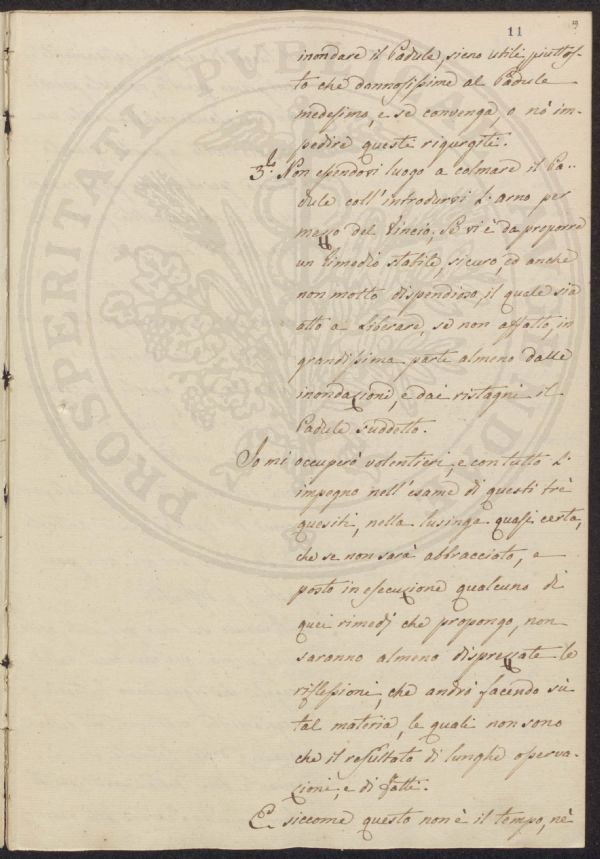 11
inondare il Padule, sieno utili piuttos-
to che dannosissime al Padule
medesimo, e se convenga, o nò im-
pedire questi rigurgiti.
3.º Non essendovi luogo a colmare il Pa-
dule coll'introdurvi l'arno per
mezzo del Vincio; Se vi è da proporre
un Rimedio stabile, sicuro, ed anche
non molto dispendioso, il quale sia
atto a liberare, se non affatto, in
grandissima parte almeno dalle
inondazioni, e dai ristagni il
Padule suddetto.
Io mi occuperò volentieri, e con tutto l'
impegno nell'esame di questi trè
quesiti, nella lusinga quasi certa,
che se non sarà abbracciato, e
posto in esecuzione qualcuno di
quei rimedj che propongo, non
saranno almeno disprezzate le
riflessioni, che andrò facendo sù
tal materia, le quali non sono
che il resultato di lunghe osserva-
zioni, e di fatti.
E siccome questo non è il tempo, nè
PROSPERITATI PUBLICAE